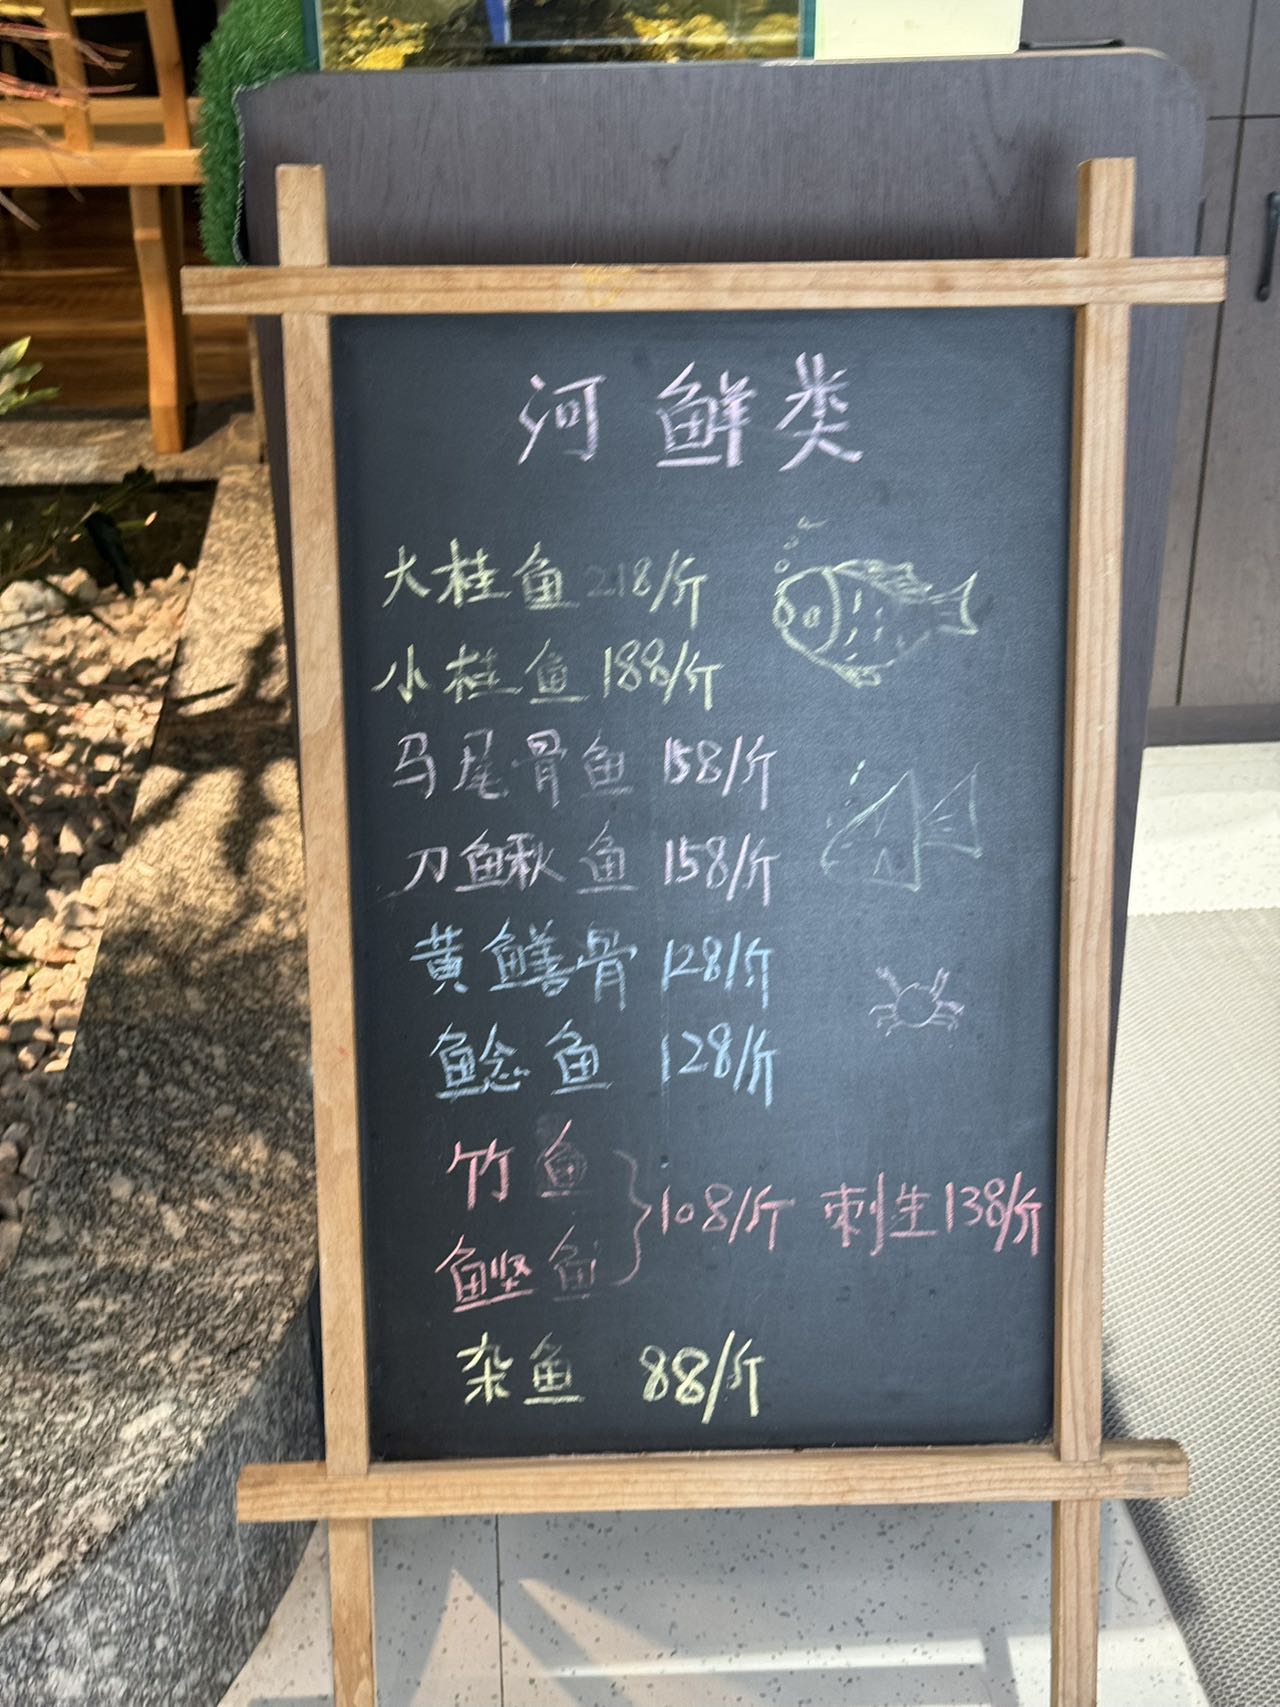 河鲜类
大桂鱼218/斤
小桂鱼188/斤
马尾骨鱼 158/斤
刀鳅鱼 158/斤
黄鳝骨 128/斤
鲶鱼 128/斤
竹鱼
鲣鱼
108/斤 刺生138/斤
杂鱼 88/斤